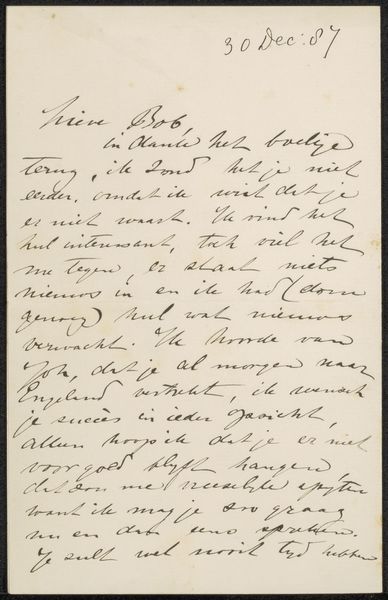 30 Dec: 87
Lieve Bob,
in dank het boekje
terug, ik zond het je niet
eerder, omdat ik wist dat je
er niet waart. Ik vind het
heel interessant, toch viel het
me tegen, er staat niets
nieuws in en ik had (dom
genoeg) heel wat nieuws
verwacht. Ik hoorde van
dat je al morgen naar
Engeland vertrekt, ik wensch
je succès in ieder opzicht,
alleen hoop ik dat je er niet
voor goed blyft hangen,
dat zou me vreeselyk spyten
want ik mag je zoo graag
nu en dan eens spreken.
Je zult wel nooit tyd hebben